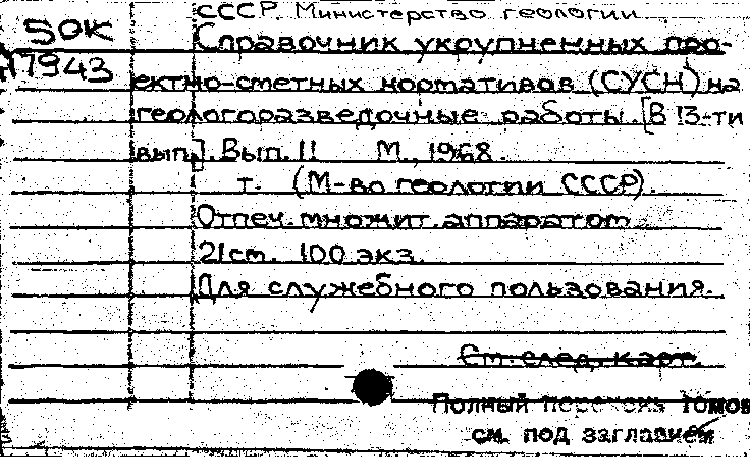 СССР. Министерство геологии.
50К
17943
Справочник укрупненных про-
ектно-сметных нормативов (СУСН) на
геологоразведочные работы. [В 13-ти
вып.]. Вып. 11 М., 1968.
т. (М-во геологии СССР).
Отпеч. множит. аппаратом
21 cm. 100 экз.
Для служебного пользования.
См. след. карт.
Полный перечень томов
см. под заглавием